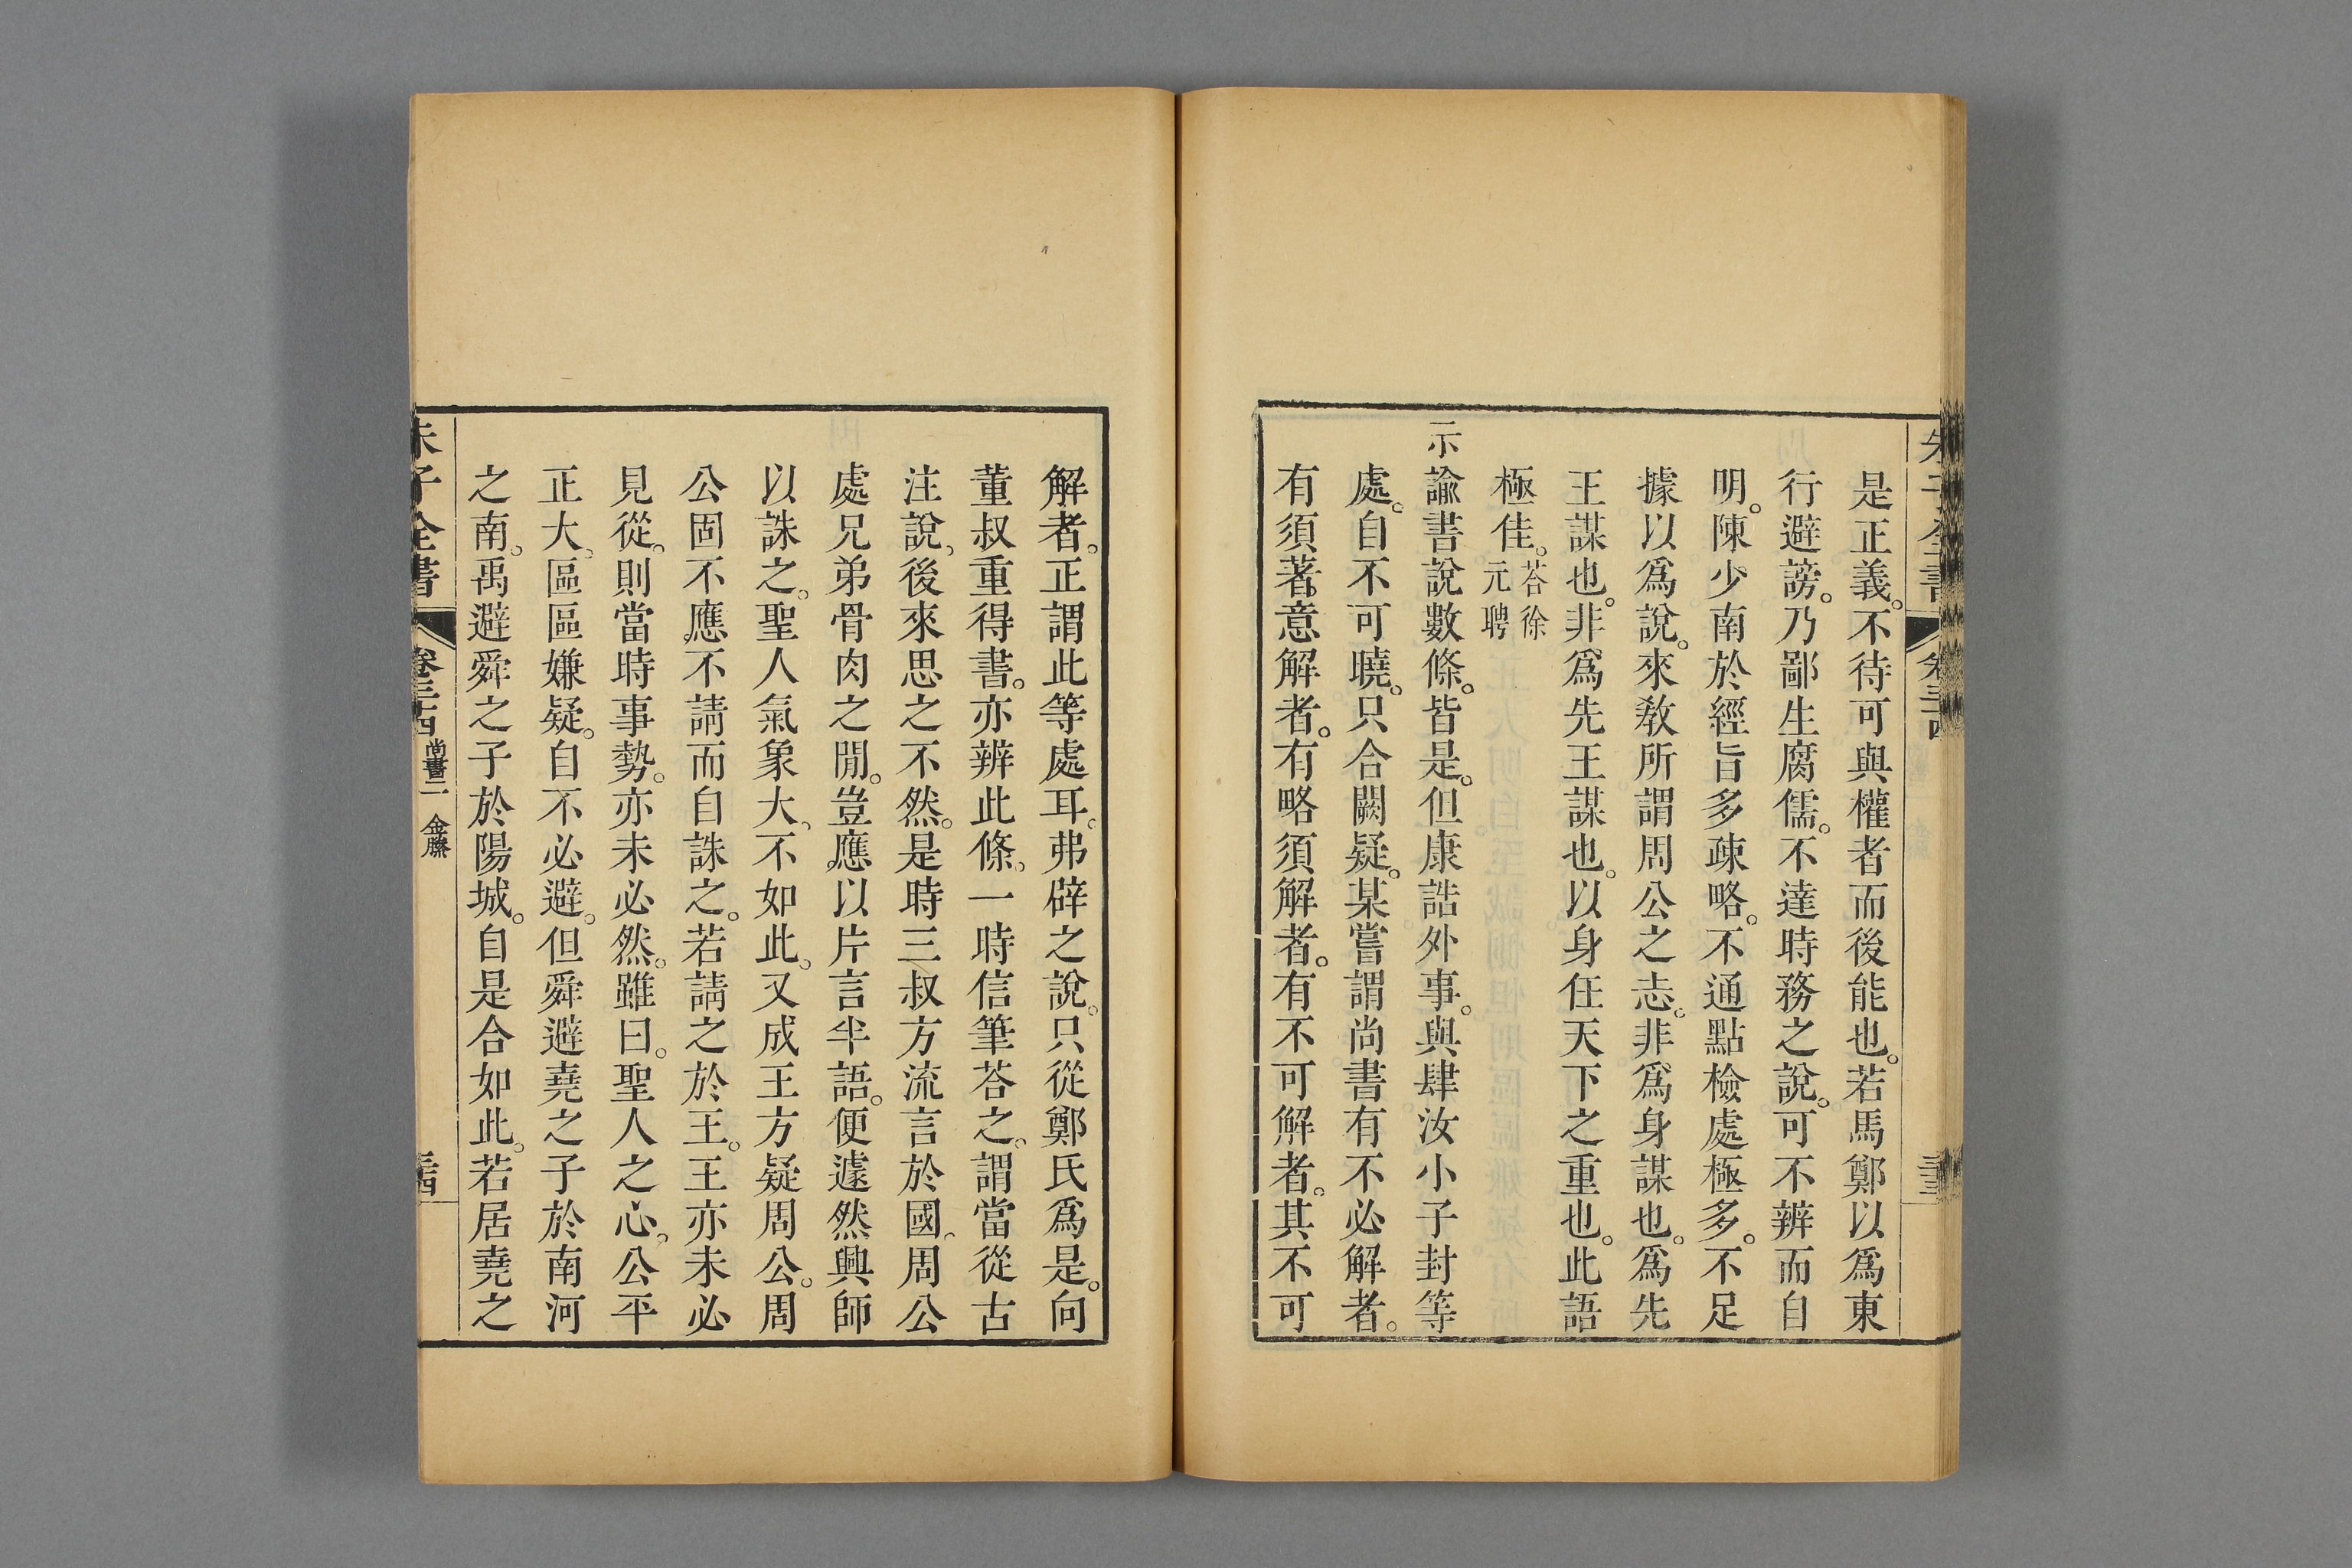 朱子全書 卷三十四 三十三
是正義。不待可與權者而後能也。若馬鄭以爲東
行避謗。乃鄙生腐儒。不達時務之說。可不辨而自
明。陳少南於經旨多疎略。不通點檢處極多。不足
據以爲說。來敎所謂周公之志。非爲身謀也。爲先
王謀也。非爲先王謀也。以身任天下之重也。此語
極佳。荅徐元聘
示諭書說數條。皆是。但康誥外事。與肆汝小子封等
處。自不可曉。只合闕疑。某嘗謂尚書有不必解者。
有須著意解者。有略須解者。有不可解者。其不可
解者。正謂此等處耳。弗辟之說。只從鄭氏爲是。向
董叔重得書。亦辨此條。一時信筆荅之。謂當從古
注說。後來思之不然。是時三叔方流言於國。周公
處兄弟骨肉之閒。豈應以片言半語。便遽然興師
以誅之。聖人氣象大。不如此。又成王方疑周公。周
公固不應不請而自誅之。若請之於王。王亦未必
見從。則當時事勢。亦未必然。雖曰。聖人之心。公平
正大。區區嫌疑。自不必避。但舜避堯之子於南河
之南。禹避舜之子於陽城。自是合如此。若居堯之
朱子全書 卷三十四 尚書二 金縢 三十四